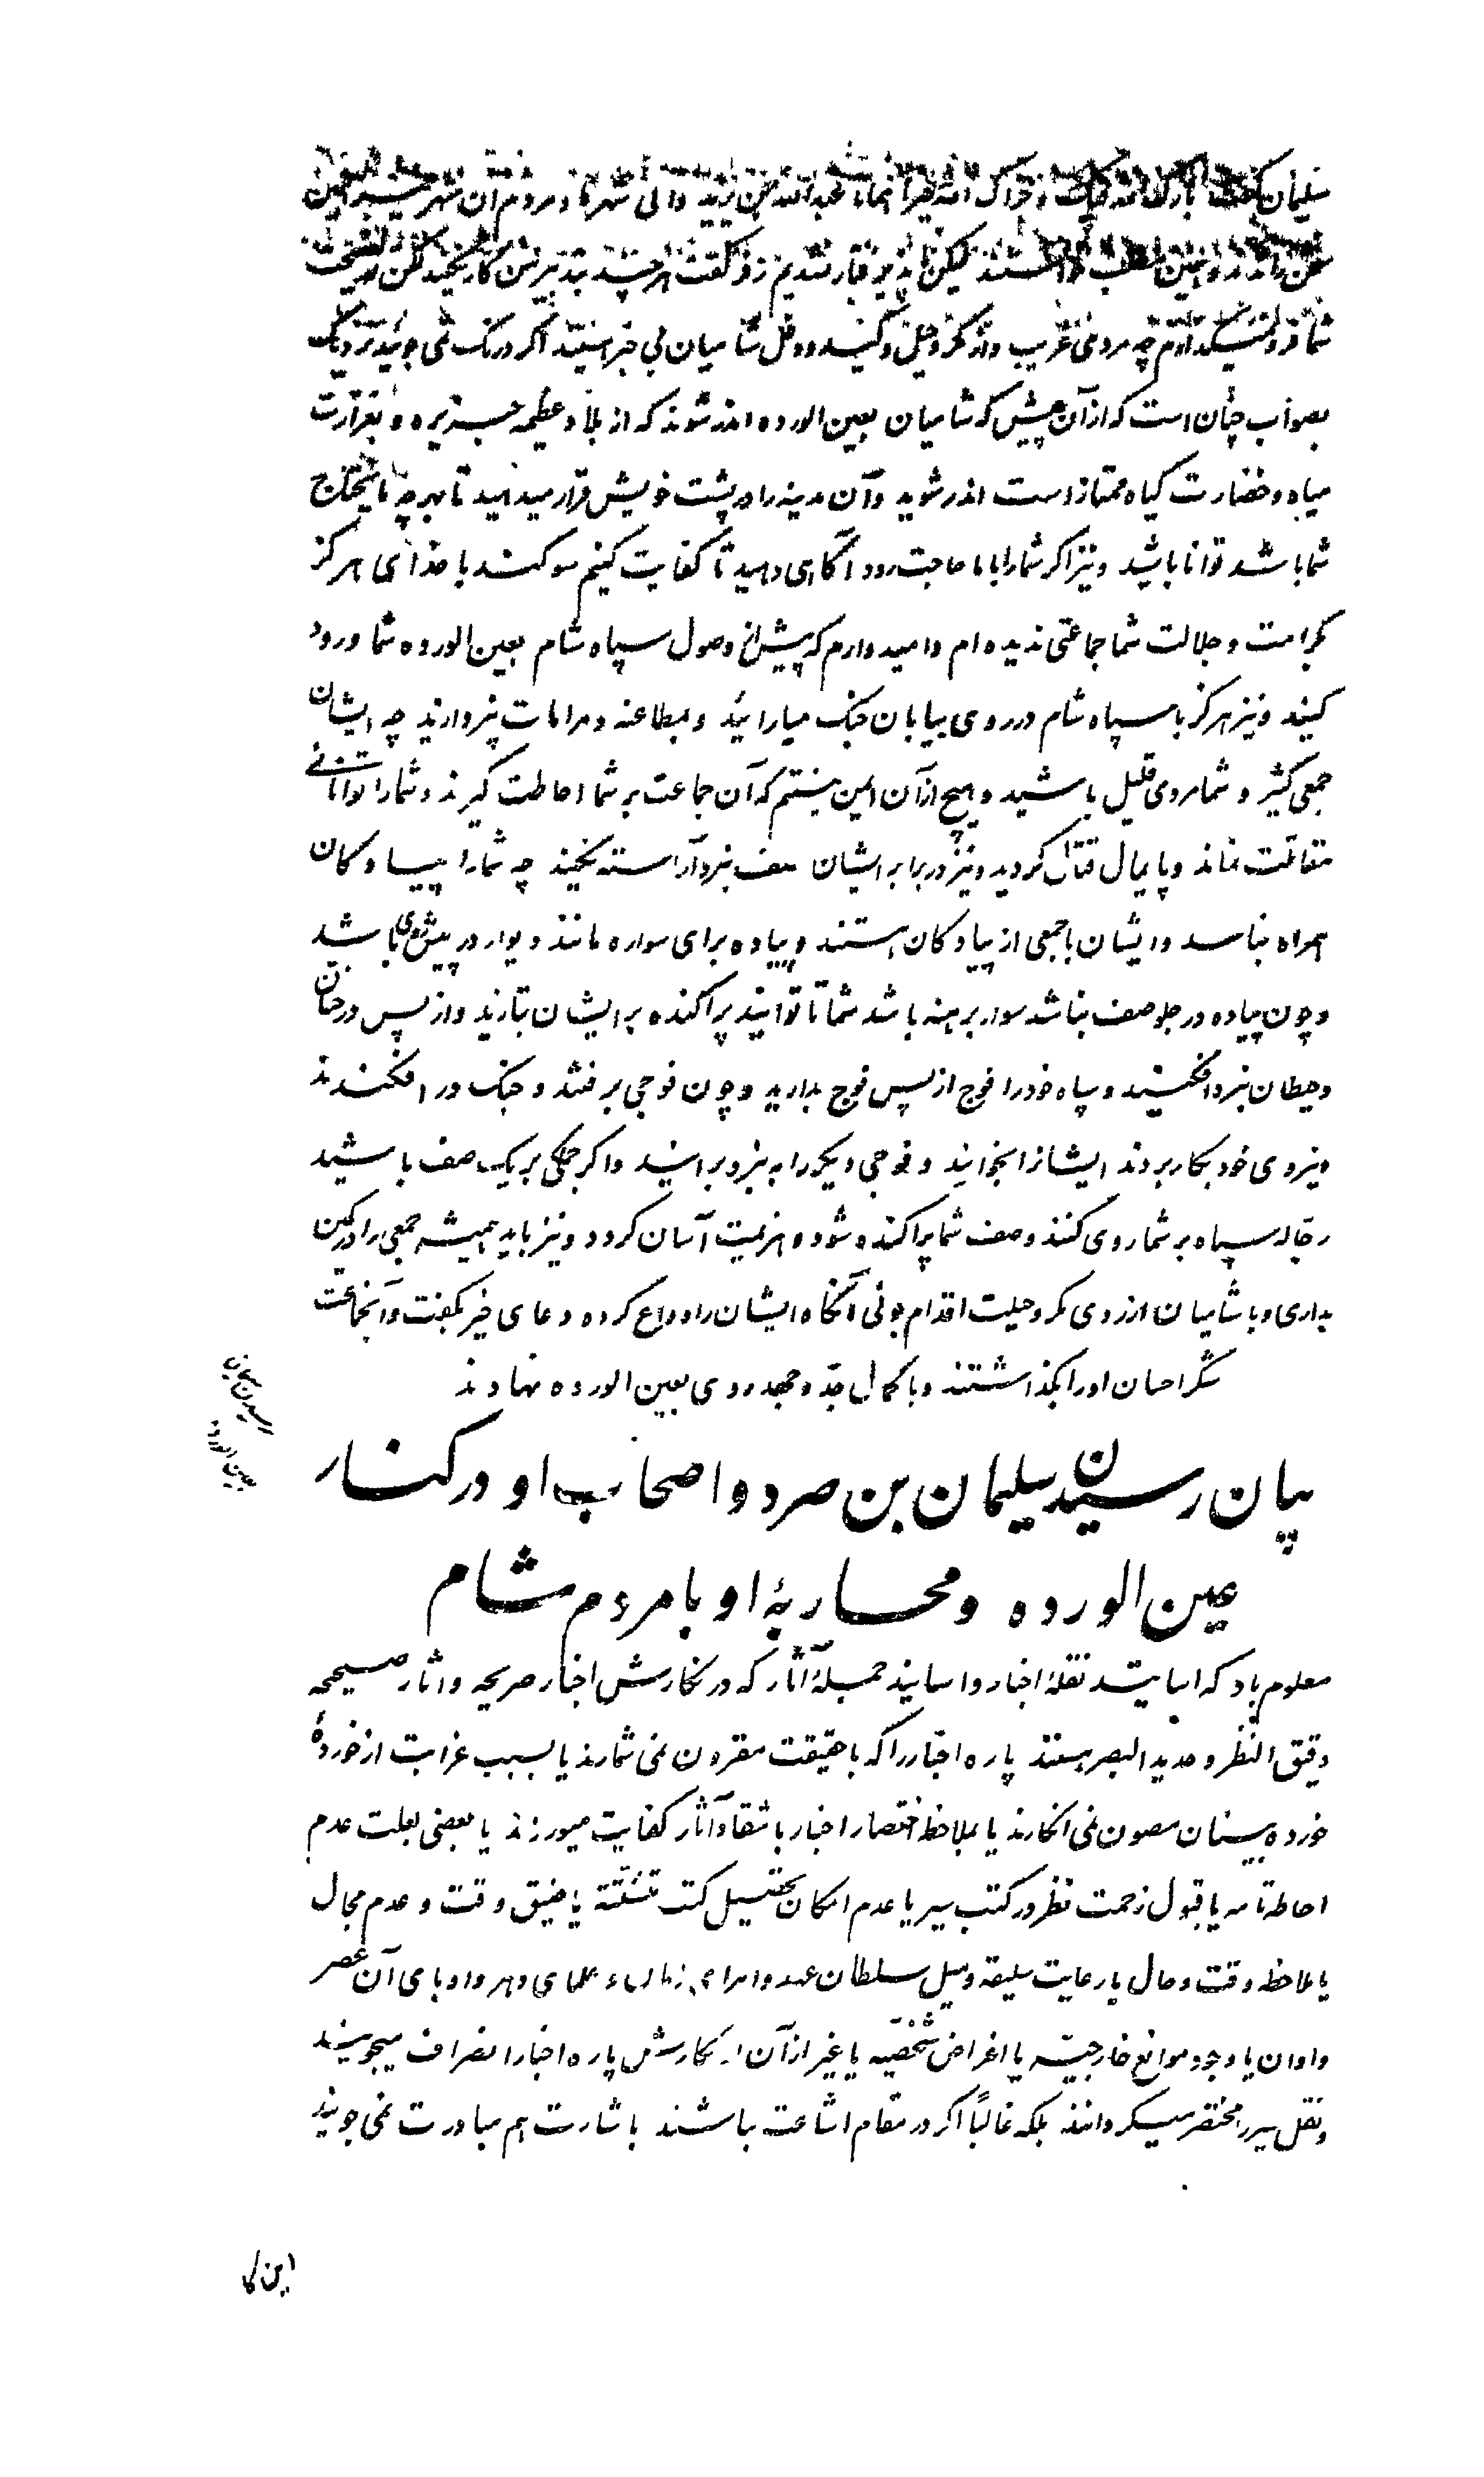 سلیمان گفت بارک الله فیک و جزاک الله خیرا همانا عبدالله بن یزید والی شهر ما و مردم آن شهر نیز همین
سخن و همین مطلب خواستند لیکن ما پذیرفتار نشدیم زفر گفت هر چند بتدبیر من کار نکنید لکن از نصیحت
شما فرو نمیگذارم چه مردمی غریب و از مکر و حیل و کید و دغل شامیان بی خبر هستند اگر درنگ نمی جوئید نزدیک
بصواب چنان است که از آن پیش که شامیان بعین الورده اندر شوند که از بلاد عظیمه جزیره و بغزارت
میاه و خضارت گیاه ممتاز است اندر شوید و آن مدینه را در پشت خویش قرار میدهید تا بهر چه مایحتاج
شما باشد توانا باشید و نیز اگر شما را با ما حاجت رود آگاهی دهید تا کفایت کنیم سوگند با خدای هرگز
بکرامت و جلالت شما جماعتی ندیده ام و امیدوارم که پیش از وصول سپاه شام بعین الورده شما ورود
کنید و نیز هرگز با سپاه شام در روی بیابان جنگ میارائید و بمطاعنه و مرامات نپردازید چه ایشان
جمعی کثیر و شما مردمی قلیل باشید و هیچ از آن ایمن نیستم که آن جماعت بر شما احاطت گیرند و شما را توانائی
مقاتلت نماند و پایمال قتال گردید و نیز در برابر ایشان صف نبرد آراسته نکنید چه شما را پیادگان
همراه نباشد و ایشان با جمعی از پیادگان هستند و پیاده برای سواره مانند دیوار در پیش روی باشد
و چون پیاده در جلو صف نباشد سوار برهنه باشد شما تا توانید پراکنده بر ایشان بتازید و از پس درختان
و حیطان نبرد افکنید و سپاه خود را فوج از پس فوج بدارید و چون فوجی برفتند و جنگ در افکندند
و نیروی خود بکار بردند ایشانرا بخوانید و فوجی دیگر را به نبرد برانید و اگر جملگی بر یک صف باشید
رجاله سپاه بر شما روی کنند و صف شما پراکنده شود و هزیمت آسان گردد و نیز باید همیشه جمعی را در کمین
بداری و با شامیان از روی مکر و حیلت اقدام جوئی آنگاه ایشان را وداع کرده دعای خیر بگفت و آنجماعت
شکر احسان او را بگذاشتند و با کمال جد و جهد روی بعین الورده نهادند
رسیدن سلیمان
بعین الورده
بیان رسیدن سلیمان بن صرد و اصحاب او در کنار
عین الورده و محاربهٔ او با مردم شام
معلوم باد که اساتید نقلهٔ اخبار و اسانید حملهٔ آثار که در نگارش اخبار صریحه و اثار صحیحه
دقیق النظر و حدید البصر هستند پاره اخبار را که با حقیقت مقرون نمی شمارند یا بسبب غرابت از خوردهٔ
خورده بینان مصون نمی انگارند یا بملاحظه اختصار اخبار باشقاء آثار کفایت میورزند یا بعضی بعلت عدم
احاطه تامه یا قبول زحمت نظر در کتب سیر یا عدم امکان تحصیل کتب متشتته یا ضیق وقت و عدم مجال
یا ملاحظه وقت و حال یا رعایت سلیقه و میل سلطان عهد و امرای زمان و علمای دهر و ادبای آن عصر
و اوان یا وجود موانع خارجیه یا اغراض شخصیه یا غیر از آن از نگارش پاره اخبار انصراف میجویند
و نقل سیر را مختصر میگردانند بلکه غالبًا اگر در مقام اشاعت باشند باشارت هم مبادرت نمی جویند
این کا